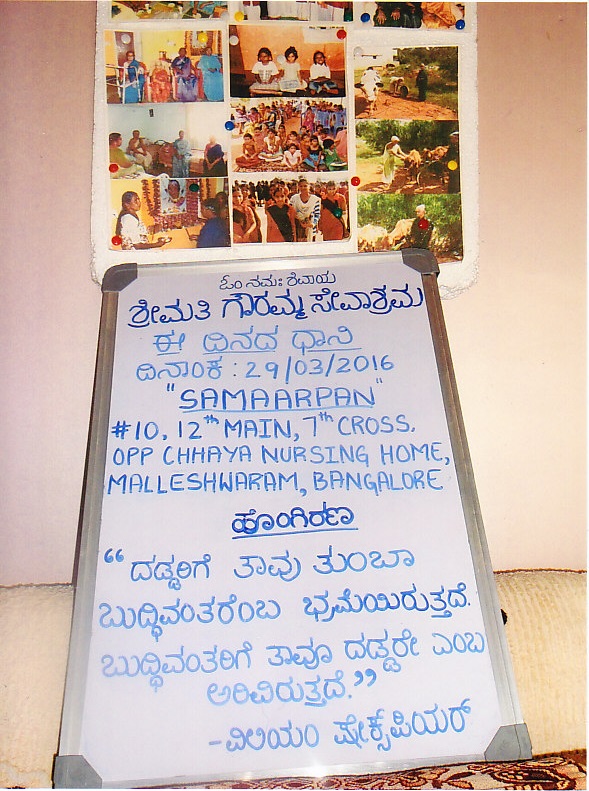 ಓಂ ನಮಃ ಶಿವಾಯ
ಶ್ರೀಮತಿ ಗೌರಮ್ಮ ಸೇವಾಶ್ರಮ
ಈ ದಿನದ ಧಾನಿ
ದಿನಾಂಕ : 29/03/2016
"SAMAARPAN"
#10, 12th MAIN, 7th CROSS,
OPP CHHAYA NURSING HOME,
MALLESHWARAM, BANGALORE
ಹೊಂಗಿರಣ
“ದಡ್ಡರಿಗೆ ತಾವು ತುಂಬಾ
ಬುದ್ಧಿವಂತರೆಂಬ ಭ್ರಮೆಯಿರುತ್ತದೆ.
ಬುದ್ಧಿವಂತರಿಗೆ ತಾವೂ ದಡ್ಡರೇ ಎಂಬ
ಅರಿವಿರುತ್ತದೆ.”
-ವಿಲಿಯಂ ಷೇಕ್ಸ್‌ಪಿಯರ್